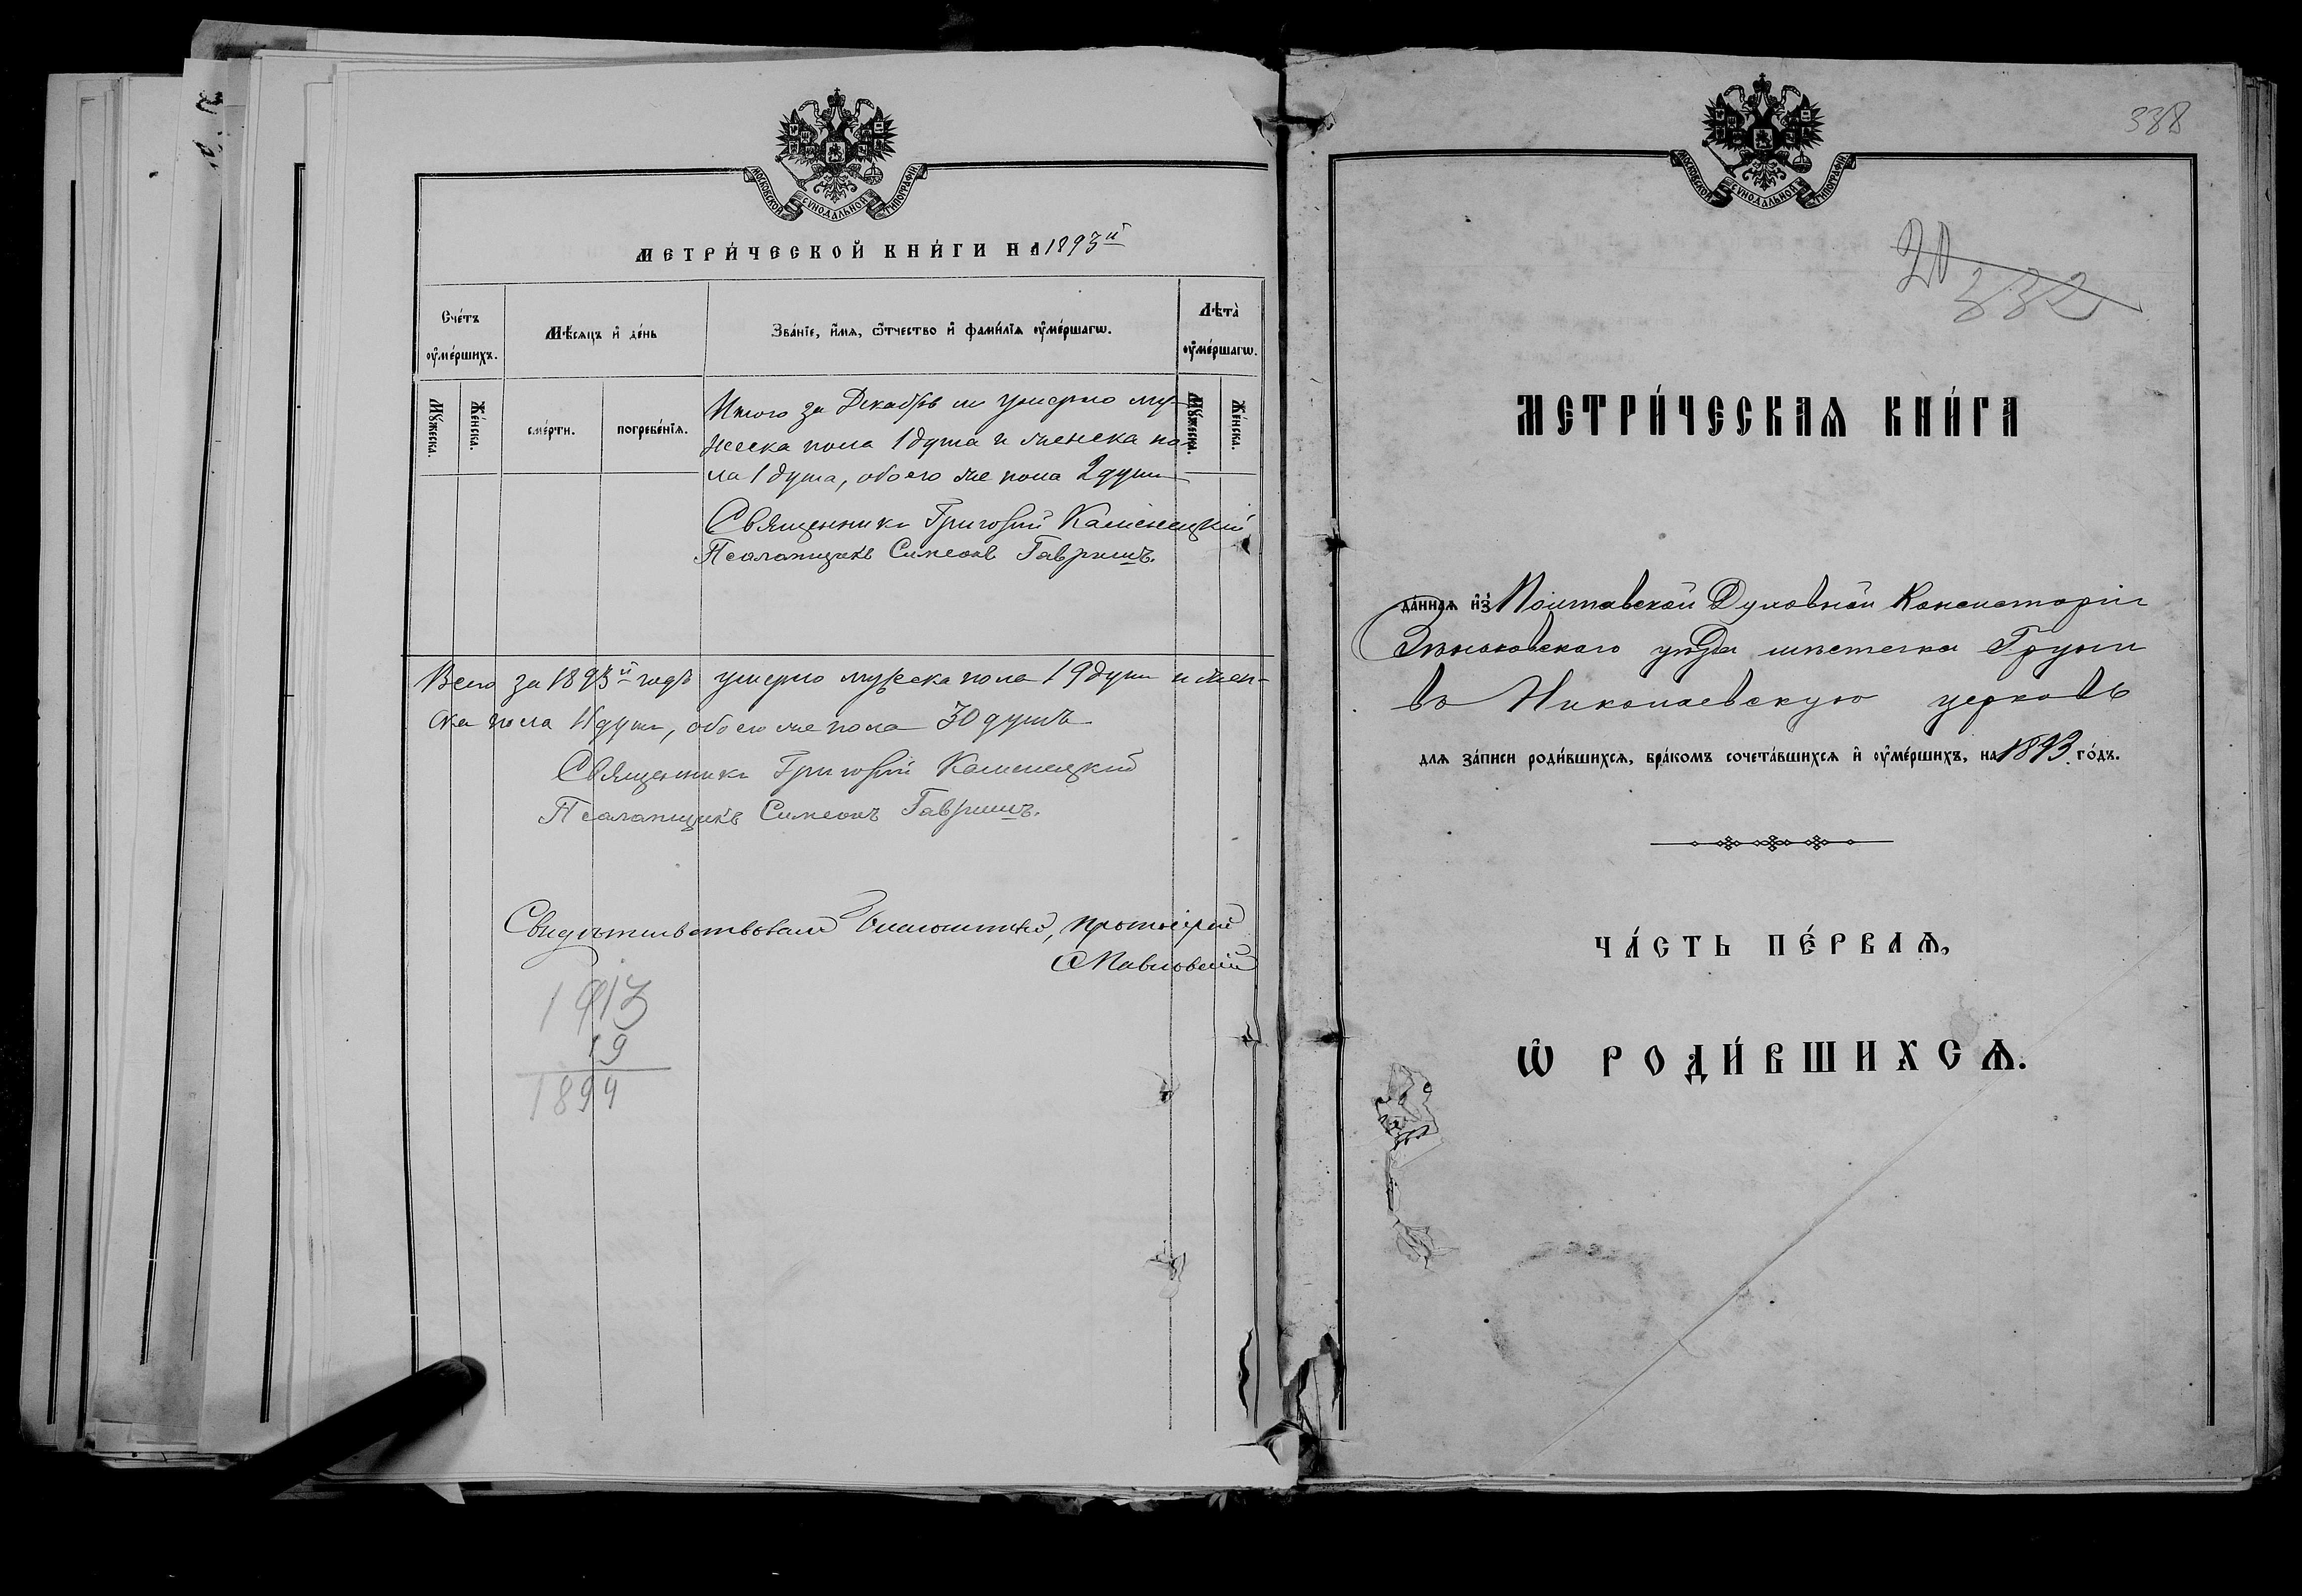 МОСКОВСКОЙ СѴНОДАЛЬНОЙ ТИПОГРАФІИ
МЕТРИ́ЧЕСКОЙ КНИ́ГИ НА 1893й
Сче́тъ оу҆ме́ршихъ.
Мѣ́сяцъ и҆ де́нь
Зва́нїе, и҆́мѧ, ѿтчество и҆ фами́лїѧ оу҆ме́ршагѡ.
Лѣта̀ оу҆ме́ршагѡ.
Мꙋ́жеска.
Же́нска.
сме́рти.
погребе́нїѧ.
Мꙋ́жеска.
Же́нска.
Итого за Декабрь м умерло му
жеска пола 1 душа и женска по
ла 1 душа, обоего же пола 2 души
Священникъ Григорій Каменецкій
Псаломщикъ Симеонъ Гавришъ.
Всего за 1893й годъ умерло мужеска пола 19 душ и жен-
ска пола 11 душ, обоего же пола 30 душъ
Священникъ Григорій Каменецкій
Псаломщикъ Симеонъ Гавришъ.
Свидѣтельствовалъ Благочинный, протоіерей
Павловскій
1913
19
1894
338
МОСКОВСКОЙ СѴНОДАЛЬНОЙ ТИПОГРАФІИ
20
332
МЕТРИ́ЧЕСКАѦ КНИ́ГА
да́ннаѧ и҆з̾ Полтавской Духовной Консисторіи
Зѣньковского уѣзда мѣстечка Груни
въ Николаевскую церковь
длѧ за́писи роди́вшихсѧ, бра́комъ сочета́вшихсѧ и҆ оу҆ме́ршихъ, на 1893 го́дъ.
ЧА́СТЬ ПЕ́РВАѦ,
Ѡ҆ РОДИ́ВШИХСѦ.